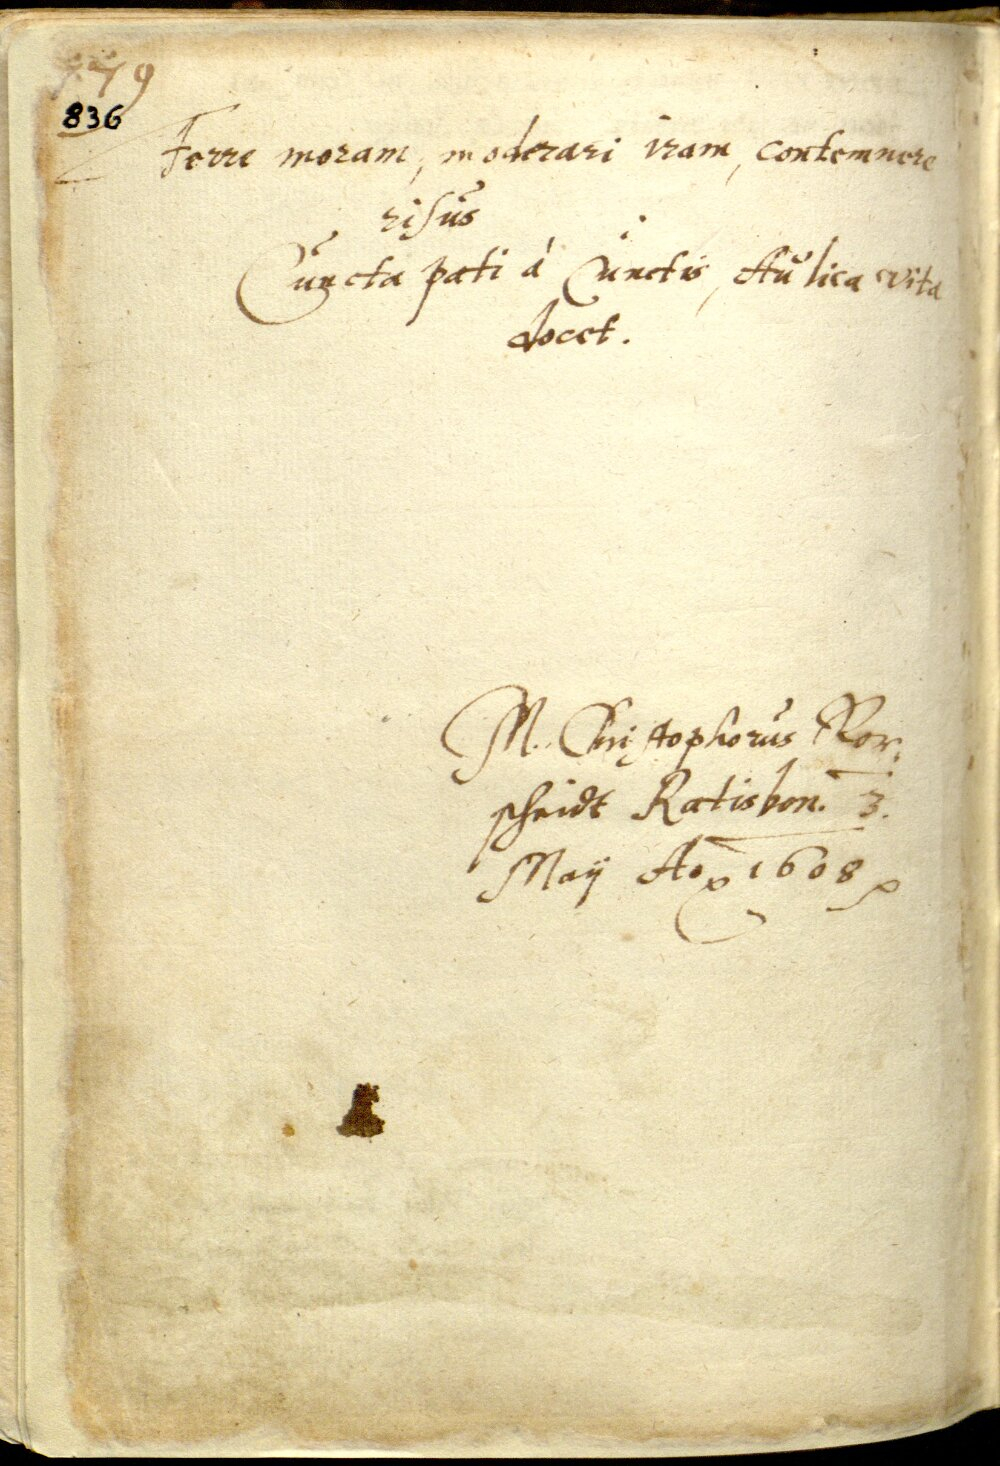 779
836
Ferre moram, moderari iram, contemnere
risus
Cuncta pati á Cunctis, Aulica vita
docet.
M. Christophorus Ror„
scheidt Ratisbon. 3.
Maÿ Ao 1608